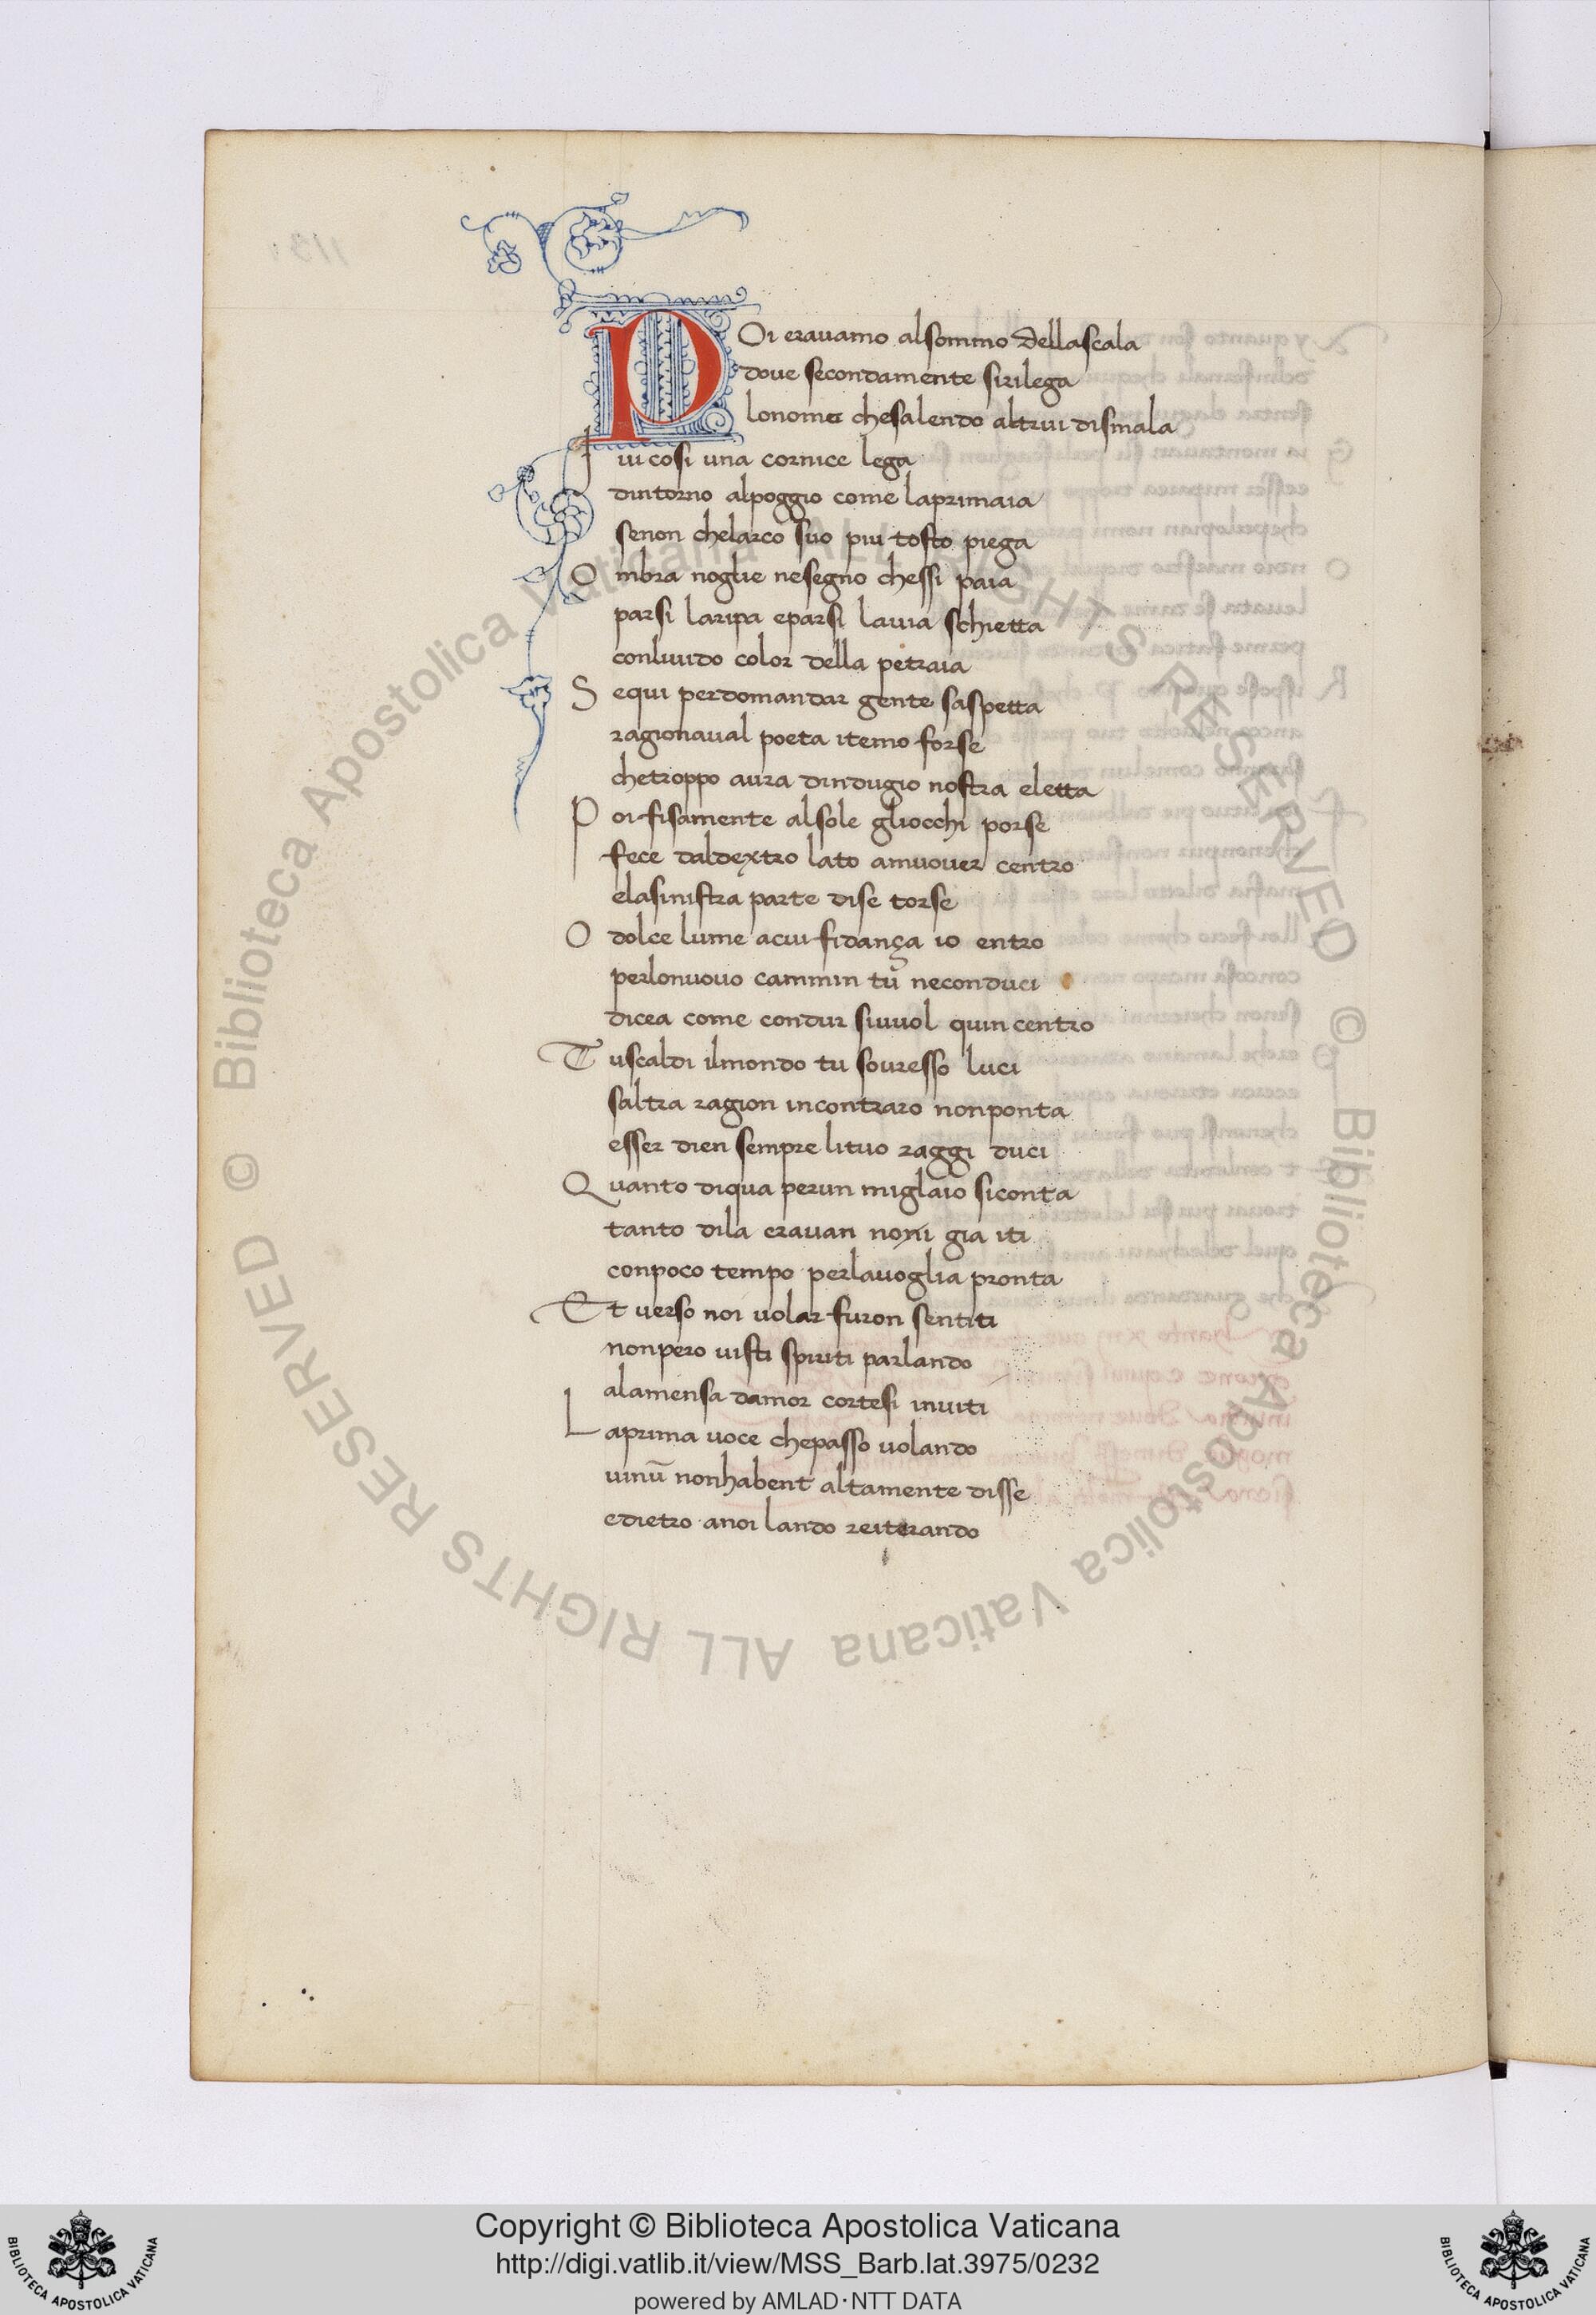 POi eravamo alsommo dellascala
dove secondamente sirilega
lonome chesalendo altrui dismala
Iui cosi una cornice lega
dintorno alpoggio come laprimaia
senon chelarco suo piu tosto piega
Ombra noglie nesegno chessi paia
parsi laripa eparsi lauia schietta
conliuido color della petraia
Sequi perdomandar gente saspetta
ragionaual poeta itemo forse
chetroppo aura dindugio nostra eletta
Poi fisamente alsole gliocchi porse
fece daldextro lato amuover centro
elasinistra parte dise torse
O dolce lume acui fidança io entro
perlonuouo cammin tū neconduci
dicea come condur siuuol quin centro
Tuscaldi ilmondo tu souresso luci
saltra ragion incontraro nonponta
esser dien sempre lituo raggi duci
Quanto diqua perun miglaio siconta
tanto dila eravan noni gia iti
conpoco tempo perlauoglia pronta
Et verso noi uolar furon sentiti
nonpero uisti spiriti parlando
alamensa damor cortesi inuiti
Laprima uoce chepasso uolando
uinū nonhabent altamente disse
edietro anoi lando reiterando
© Biblioteca Apostolica Vaticana ALL RIGHTS RESERVED
© Biblioteca Apostolica Vaticana ALL RIGHTS RESERVED
BIBLIOTECA APOSTOLICA VATICANA
Copyright © Biblioteca Apostolica Vaticana
http://digi.vatlib.it/view/MSS_Barb.lat.3975/0232
powered by AMLAD·NTT DATA
BIBLIOTECA APOSTOLICA VATICANA